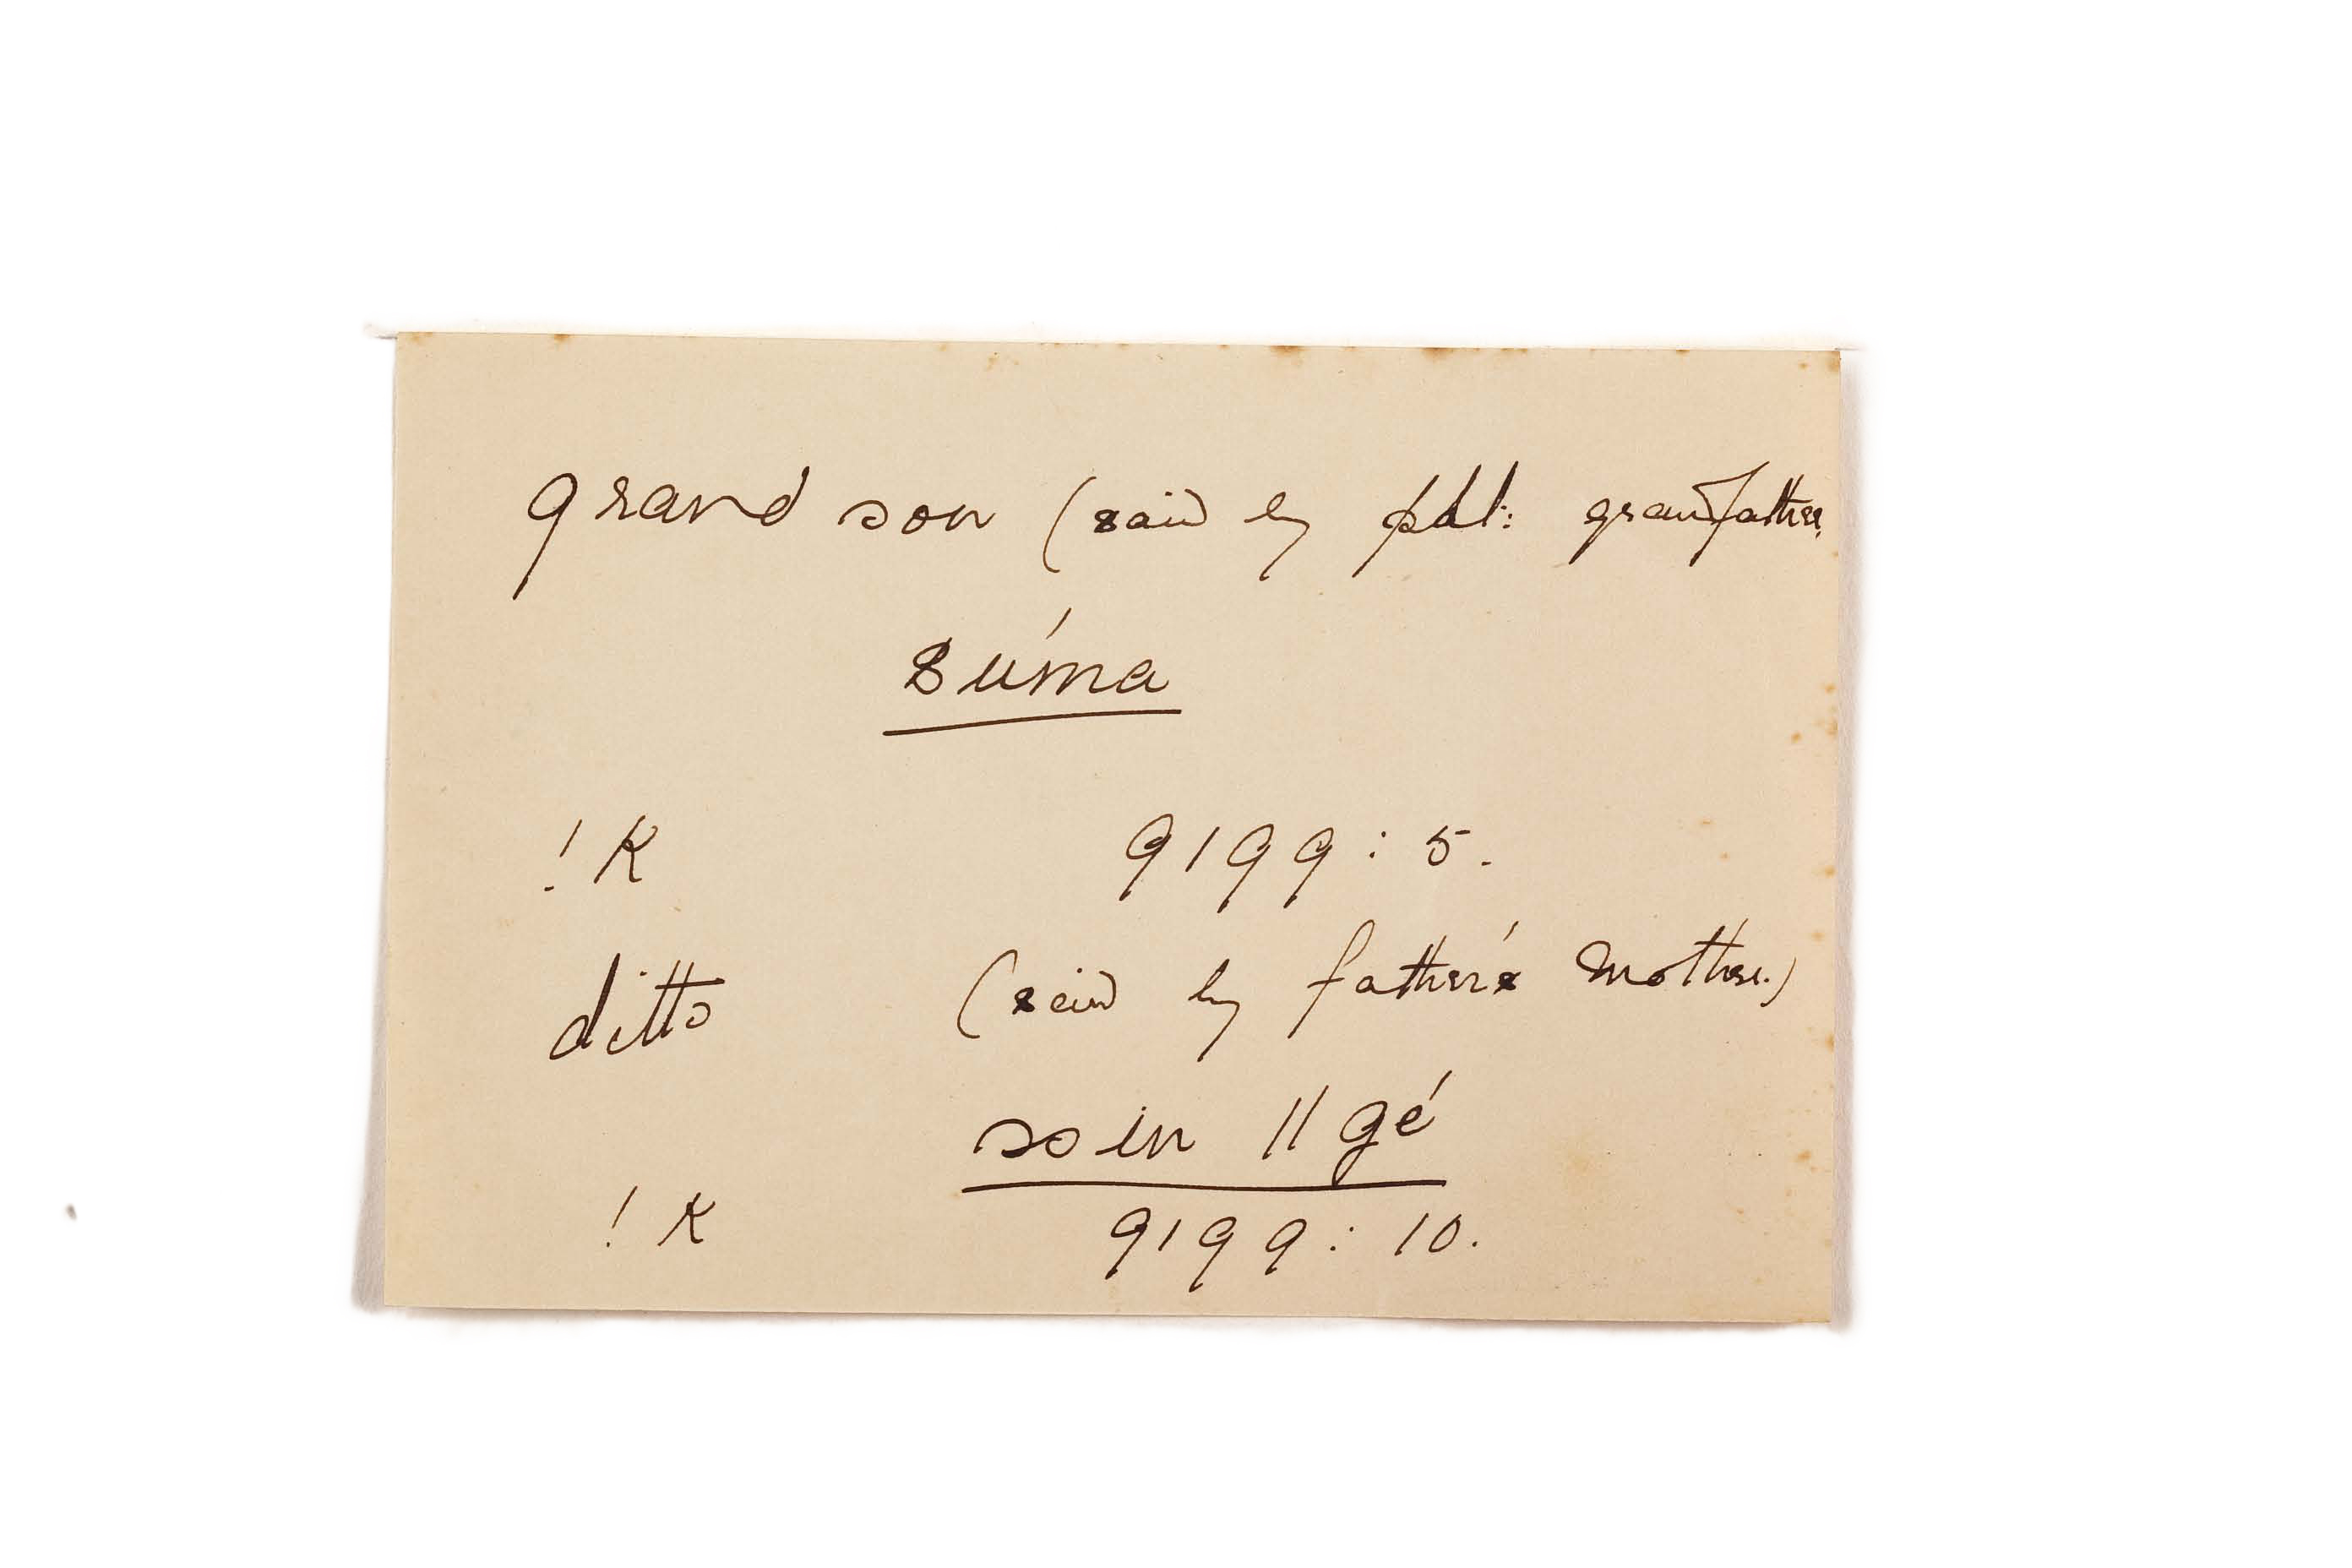 grand son (said by pat: grandfather.
súma
! K 9199 : 5.
ditto (said by father's mother.)
so in ǁ gé
! K 9199 : 10.